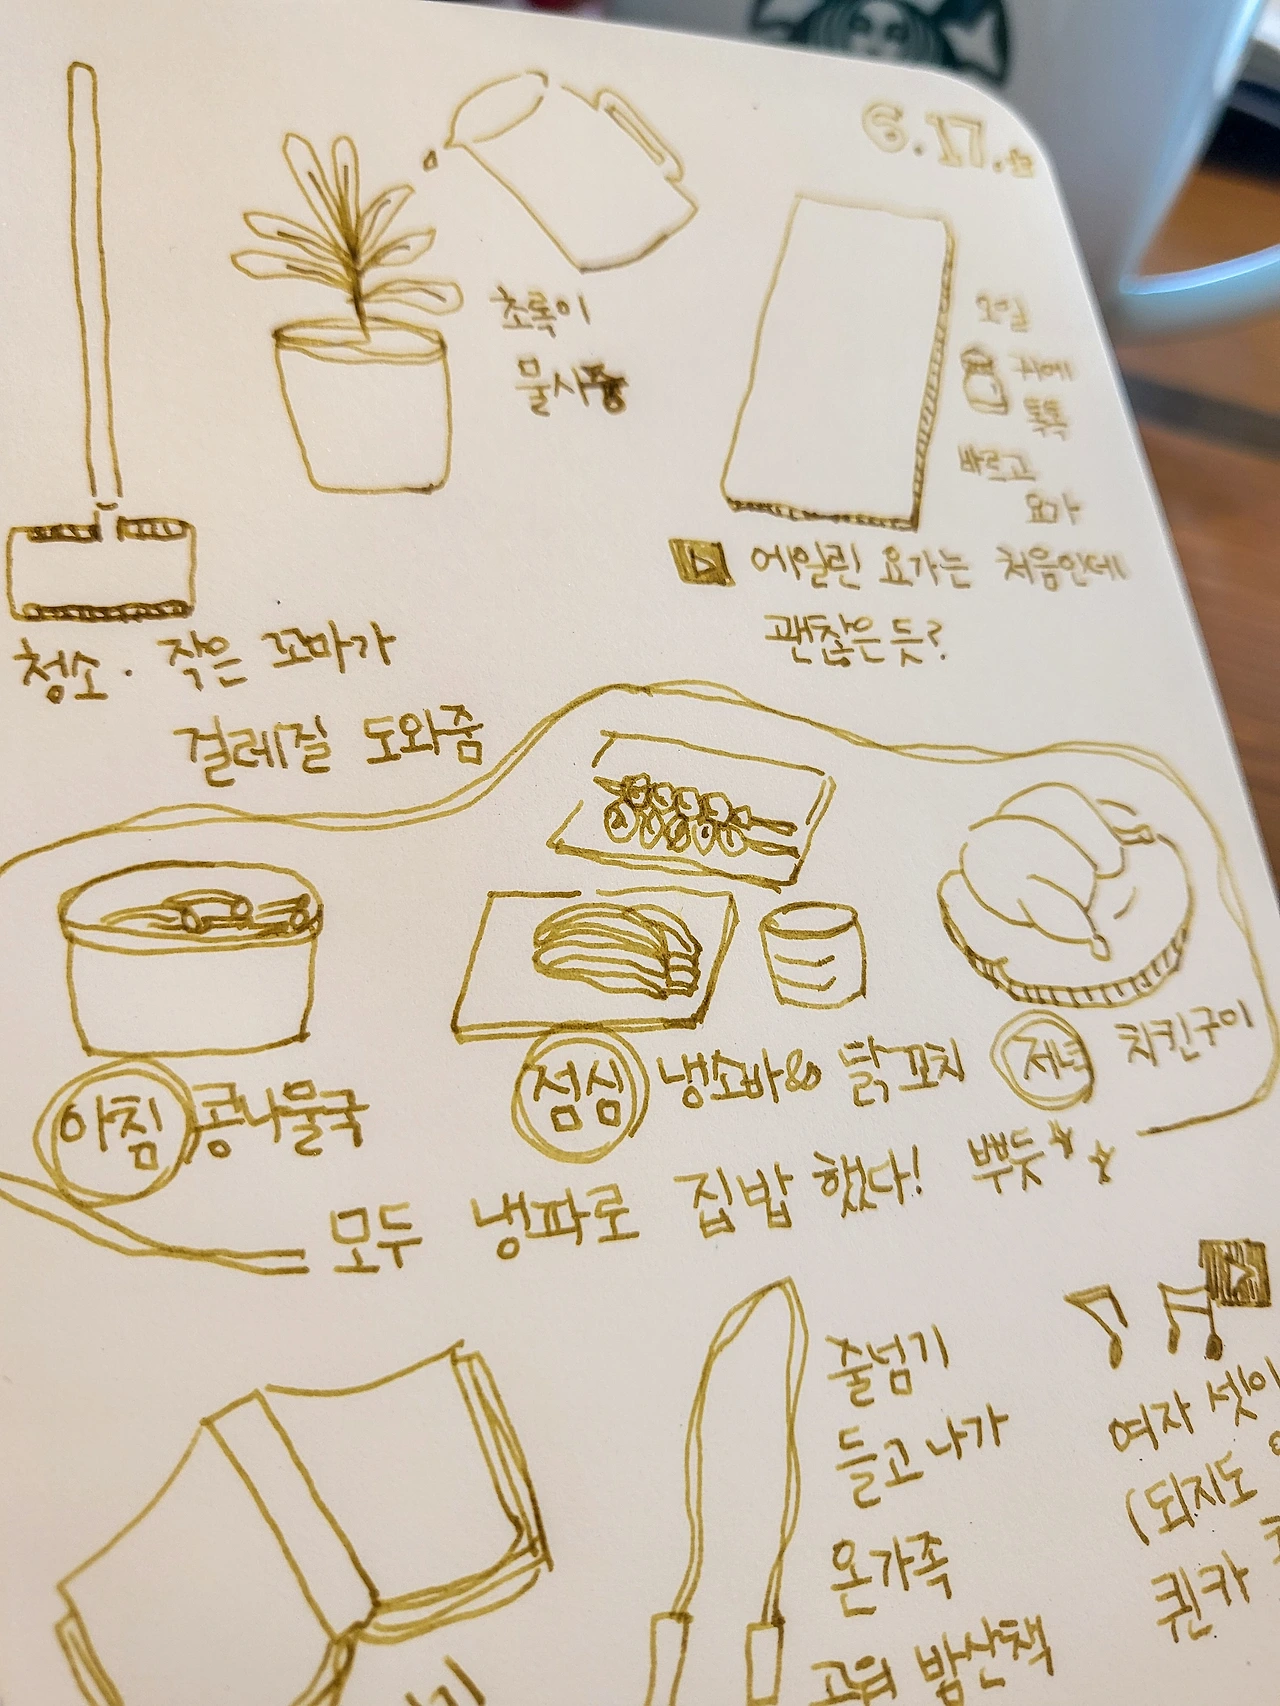 6.17.수
초록이
물시중
오일
귀에
톡톡
바르고
요가
에일린 요가는 처음인데
괜찮은 듯?
청소. 작은 꼬마가
걸레질 도와줌
아침 콩나물국
점심 냉소바 & 닭꼬치
저녁 치킨구이
모두 냉파로 집밥 했다! 뿌듯
줄넘기
들고 나가
온가족
밤산책
여자 셋이
(되지도
퀸카